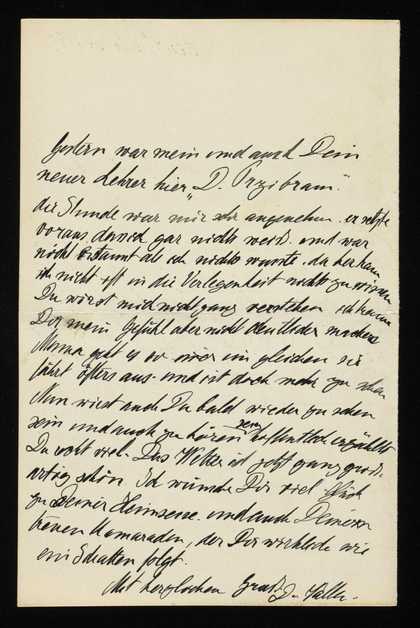 Gestern war mein und auch Dein
neuer Lehrer hier „D. Przibram“.
die Stunde war mir sehr angenehm. er setzte
voraus, dass ich gar nichts weiß. und war
nicht erstaunt als ich nichts wusste. da her kam
ich nicht oft in die Verlegenheit nichts zu wissen
Du wirst mich nicht ganz verstehen ich kann
Dir mein Gefühl aber nicht deutlicher machen
Mama geht es so immer im gleichen sie
fährt öfters aus. und ist doch mehr zu sehen
Nun wirst auch Du bald wieder zu sehen
sein und auch zu hören sein hoffentlich erzählst
Du recht viel. Das Wetter ist jetzt ganz groß
artig schön. Ich wünsche Dir viel Glück
zu Deiner Heimreise. und auch Deinem
treuen Kamaraden, der Dir wirklich wie
ein Schatten folgt.
Mit herzlichen Gruß D.